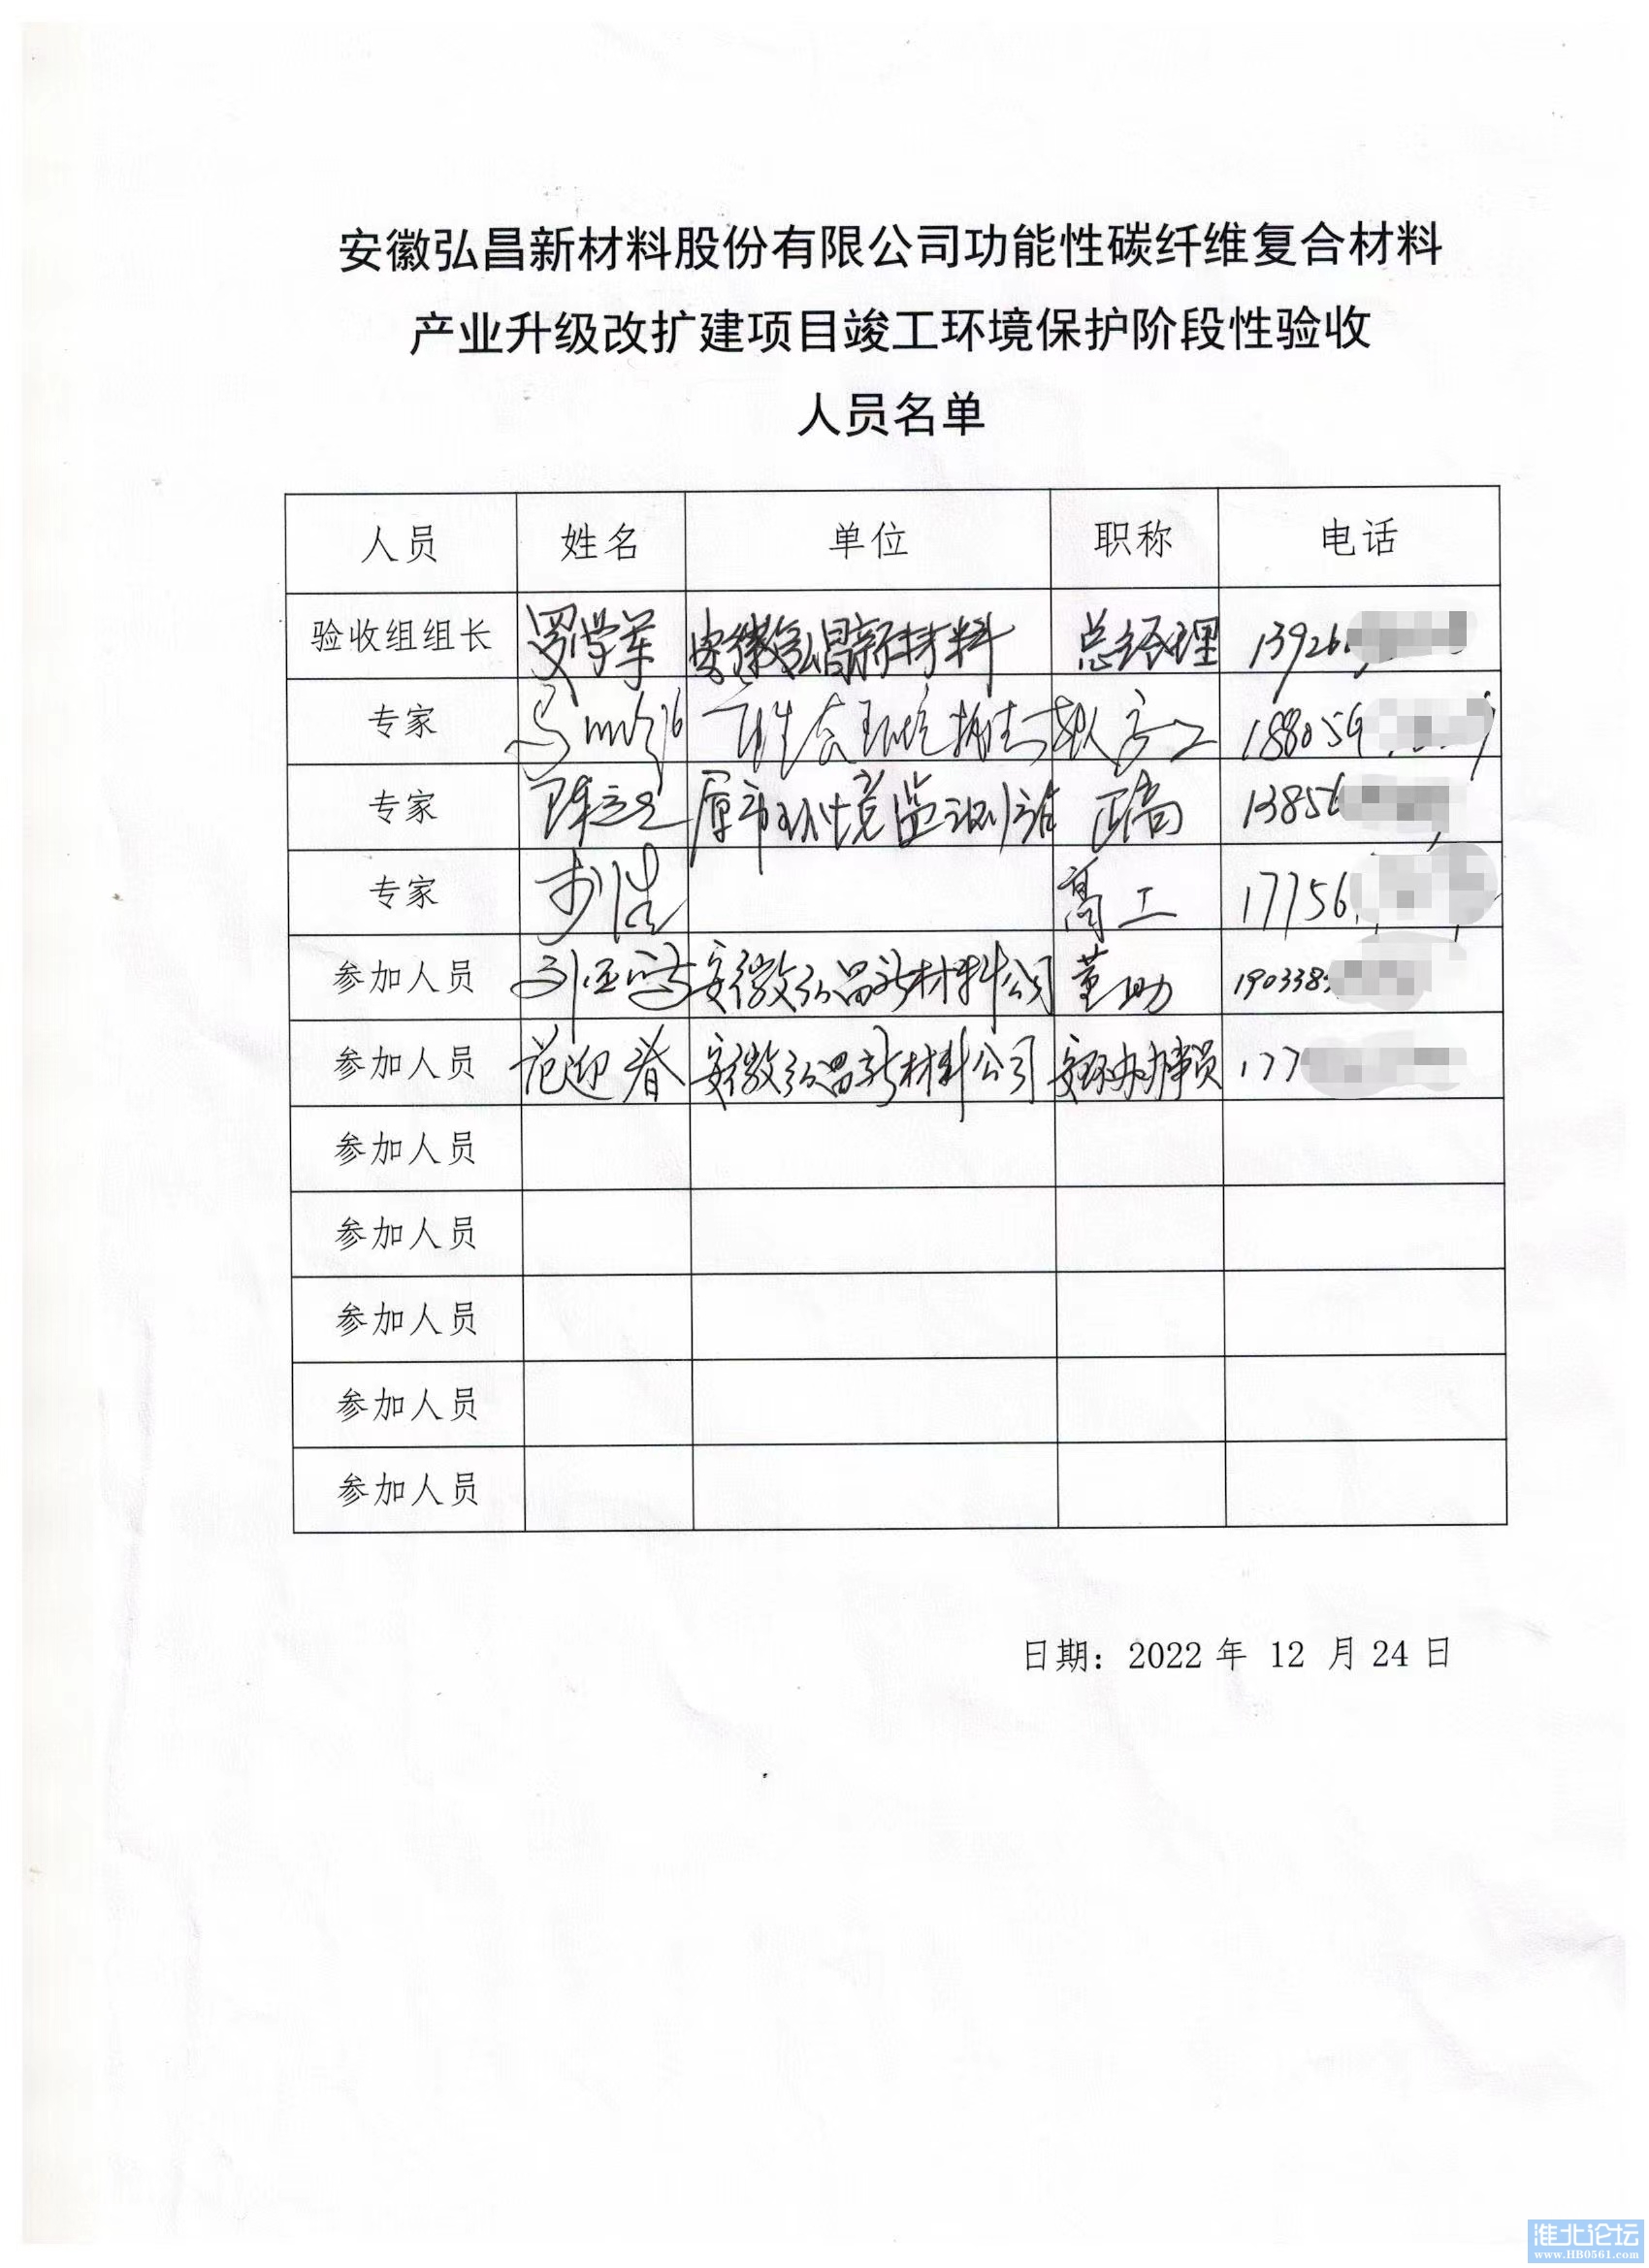 安徽弘昌新材料股份有限公司功能性碳纤维复合材料
产业升级改扩建项目竣工环境保护阶段性验收
人员名单
人员 姓名 单位 职称 电话
验收组组长 罗学军 安徽弘昌新材料 总经理 13926
专家 高工 188059
专家 原市环境监测站 正高 13856
专家 高工 17756
参加人员 安徽弘昌新材料公司 董助 190338
参加人员 范迎春 安徽弘昌新材料公司 安环办办事员 177
参加人员
参加人员
参加人员
参加人员
参加人员
日期：2022 年 12 月 24 日
淮北论坛
www.HB0561.com